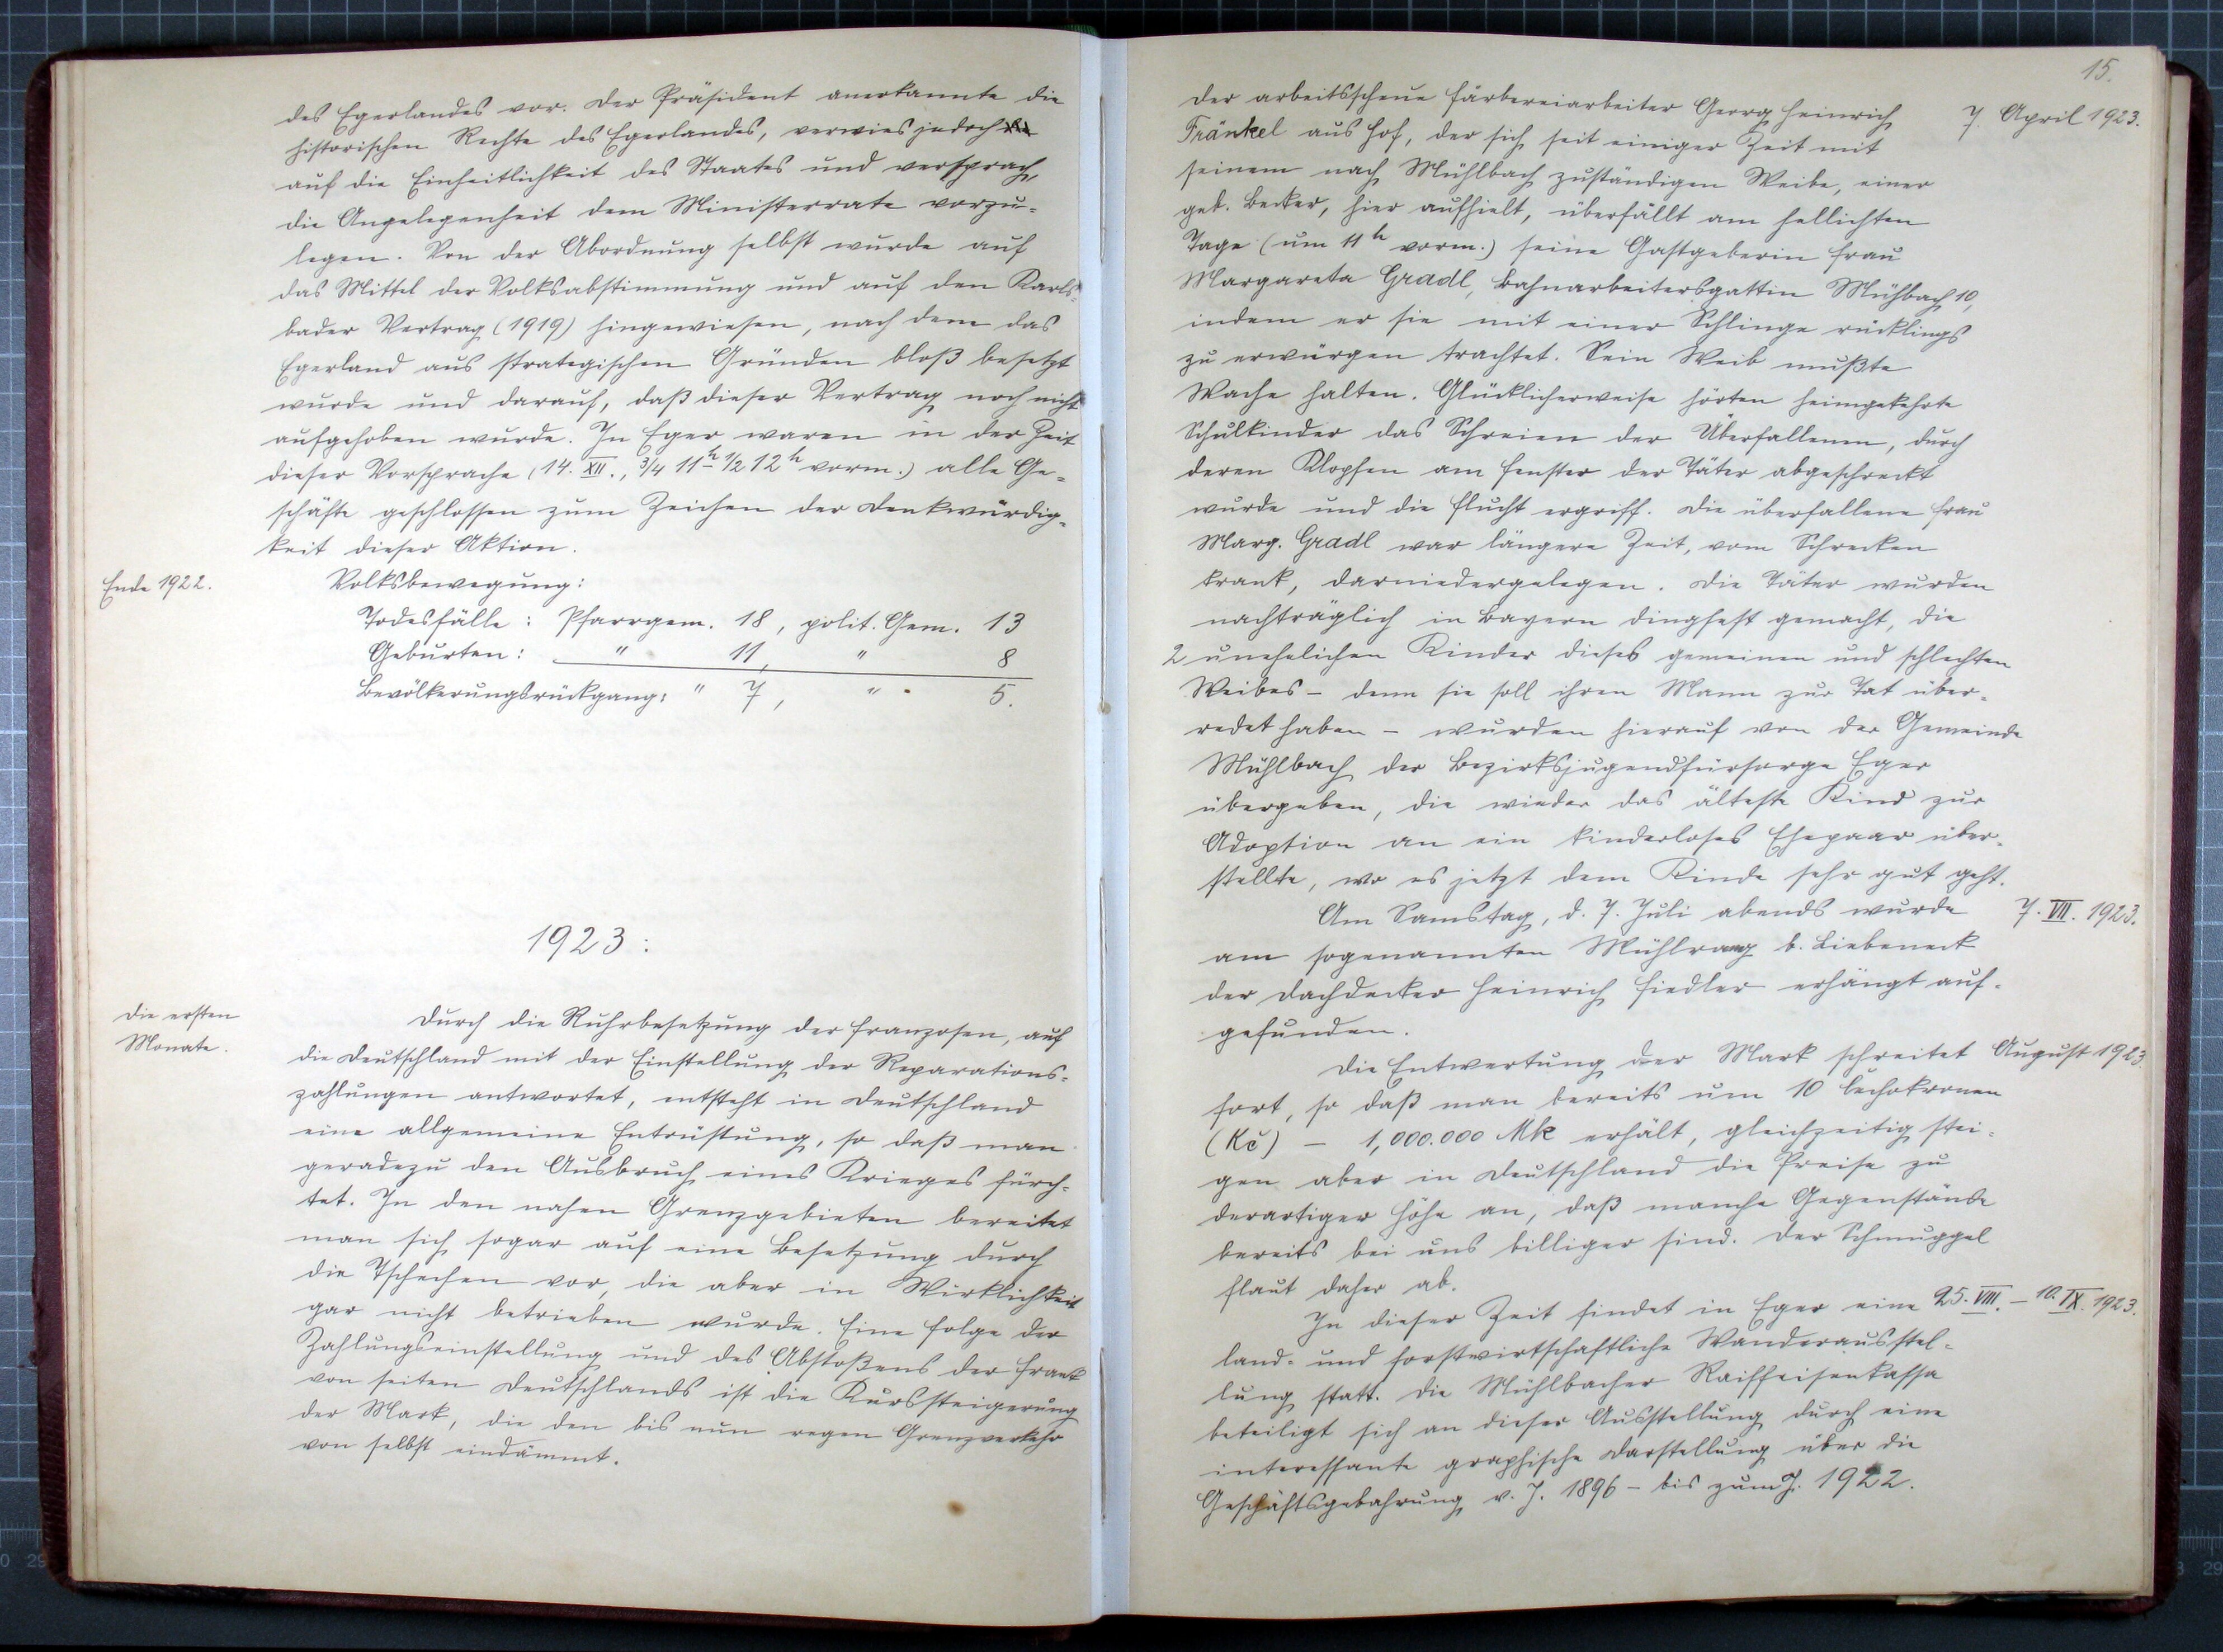 des Egerlandes vor. Der Präsident anerkannte die
historischen Rechte des Egerlandes, verwies jedoch
auf die Einheitlichkeit des Staates und versprach,
die Angelegenheit dem Ministerrate vorzu-
legen. Von der Abordnung selbst wurde auf
das Mittel der Volksabstimmung und auf den Karls-
bader Vertrag (1919) hingewiesen, nach dem das
Egerland aus strategischen Gründen bloß besetzt
wurde und darauf, daß dieser Vertrag noch nicht
aufgehoben wurde. In Eger waren in der Zeit
dieser Vorsprache (14. XII., 3/4 11h - 1/2 12h vorm.) alle Ge-
schäfte geschlossen zum Zeichen der Denkwürdig-
keit dieser Aktion.
Ende 1922.
Volksbewegung:
Todesfälle: Pfarrgem. 18, polit. Gem. 13
Geburten: " 11, " 8
Bevölkerungsrückgang: " 7, " . 5.
1923:
Die ersten
Monate.
Durch die Ruhrbesetzung der Franzosen, auf
die Deutschland mit der Einstellung der Reparations-
zahlungen antwortet, entsteht in Deutschland
eine allgemeine Entrüstung, so daß man
geradezu den Ausbruch eines Krieges fürch-
tet. In den nahen Grenzgebieten bereitet
man sich sogar auf eine Besetzung durch
die Tschechen vor, die aber in Wirklichkeit
gar nicht betrieben wurde. Eine Folge der
Zahlungseinstellung und des Abstoßens der Frank
von seiten Deutschlands ist die Kurssteigerung
der Mark, die den bis nun regen Grenzverkehr
von selbst eindämmt.
15.
7. April 1923.
Der arbeitsscheue Färbereiarbeiter Georg Heinrich
Fränkel aus Hof, der sich seit einiger Zeit mit
seinem nach Mühlbach zuständigen Weibe, einer
geb. Becker, hier aufhielt, überfällt am hellichten
Tage (um 11h vorm.) seine Gastgeberin Frau
Margareta Gradl, Bahnarbeitersgattin Mühbach 10,
indem er sie mit einer Schlinge rücklings
zu erwürgen trachtet. Sein Weib mußte
Wache halten. Glücklicherweise hörten heimgekehrte
Schulkinder das Schreien der Überfallenen, durch
deren Klopfen am Fenster der Täter abgeschreckt
wurde und die Flucht ergriff. Die überfallene Frau
Marg. Gradl war längere Zeit, vom Schrecken
krank, darniedergelegen. Die Täter wurden
nachträglich in Bayern dingfest gemacht, die
2 unehelichen Kinder dieses gemeinen und schlechten
Weibes – denn sie soll ihren Mann zur Tat über-
redet haben – wurden hierauf von der Gemeinde
Mühlbach der Bezirksjugendfürsorge Eger
übergeben, die wieder das älteste Kind zur
Adoption an ein kinderloses Ehepaar über-
stellte, wo es jetzt dem Kinde sehr gut geht.
Am Samstag, d. 7. Juli abends wurde
7. VII. 1923.
am sogenannten Mühlrang b. Liebeneck
der Dachdecker Heinrich Fiedler erhängt auf-
gefunden.
Die Entwertung der Mark schreitet
August 1923.
fort, so daß man bereits um 10 Čechokronen
(Kč) – 1,000.000 Mk erhält, gleichzeitig stei-
gen aber in Deutschland die Preise zu
derartiger Höhe an, daß manche Gegenstände
bereits bei uns billiger sind. Der Schmuggel
flaut daher ab.
In dieser Zeit findet in Eger eine
25. VIII. – 10. IX. 1923.
land- und forstwirtschaftliche Wanderausstel-
lung statt. Die Mühlbacher Raiffeisenkassa
beteiligt sich an dieser Ausstellung durch eine
interessante graphische Darstellung über die
Geschäftsgebahrung v. J. 1896 – bis zum J. 1922.